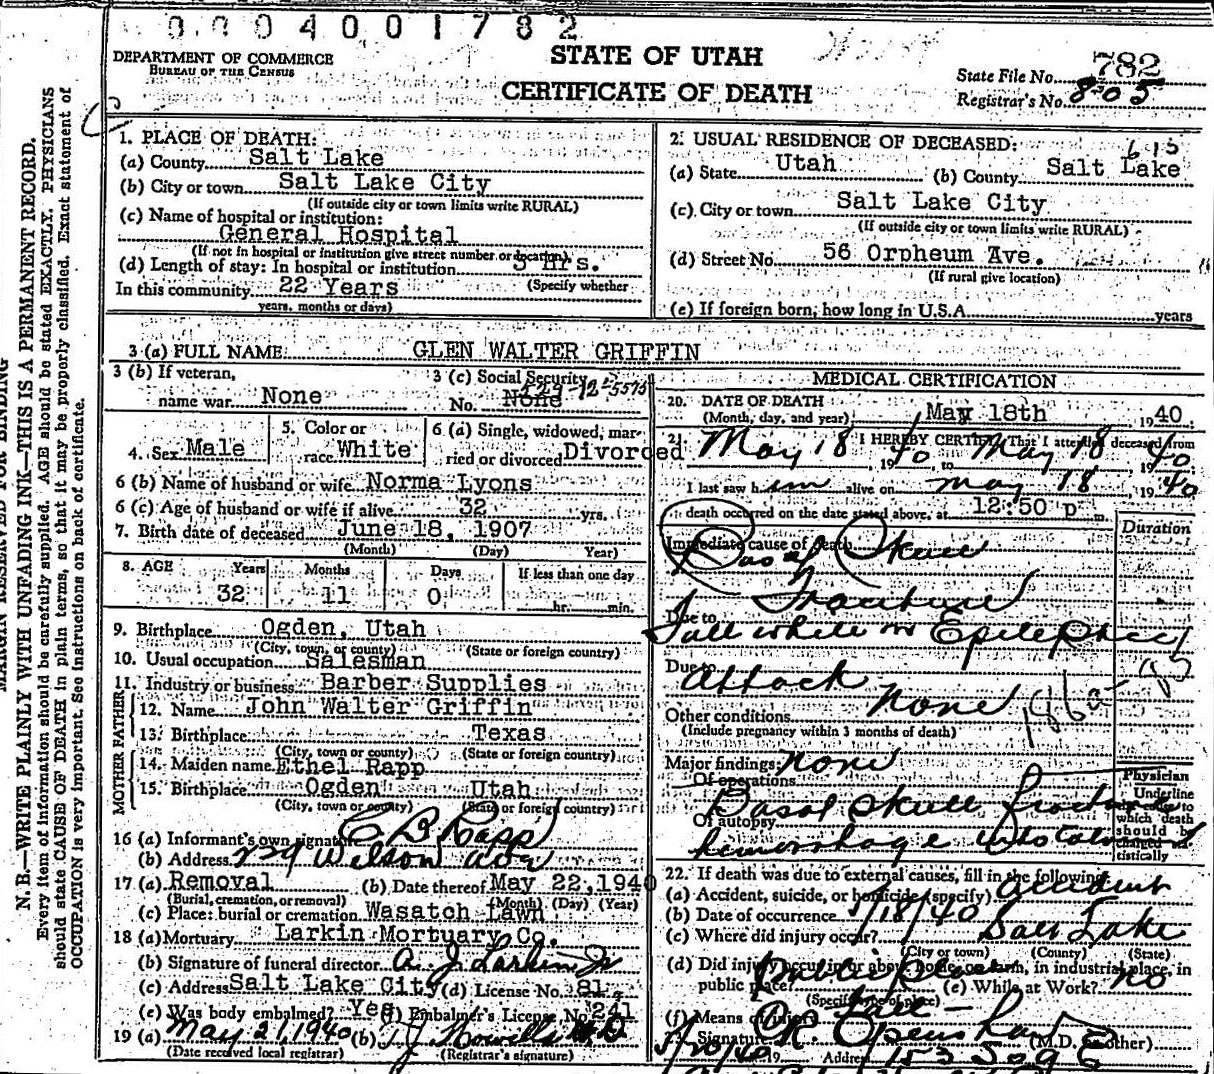 0004001782
DEPARTMENT OF COMMERCE
BUREAU OF THE CENSUS
STATE OF UTAH
CERTIFICATE OF DEATH
State File No. 782
Registrar's No. 805
N. B.—WRITE PLAINLY WITH UNFADING INK—THIS IS A PERMANENT RECORD.
Every item of information should be carefully supplied. AGE should be stated EXACTLY. PHYSICIANS
should state CAUSE OF DEATH in plain terms, so that it may be properly classified. Exact statement of
OCCUPATION is very important. See instructions on back of certificate.
MARGIN RESERVED FOR BINDING
1. PLACE OF DEATH:
(a) County Salt Lake
(b) City or town Salt Lake City
(If outside city or town limits write RURAL)
(c) Name of hospital or institution:
General Hospital
(If not in hospital or institution give street number or location)
(d) Length of stay: In hospital or institution 3 hrs.
(Specify whether
In this community 22 Years
years, months or days)
2. USUAL RESIDENCE OF DECEASED:
615
(a) State Utah (b) County Salt Lake
(c) City or town Salt Lake City
(If outside city or town limits write RURAL)
(d) Street No. 56 Orpheum Ave.
(If rural give location)
(e) If foreign born, how long in U.S.A. years
3 (a) FULL NAME GLEN WALTER GRIFFIN
3 (b) If veteran,
name war None
3 (c) Social Security
No. None
4. Sex Male
5. Color or
race White
6 (a) Single, widowed, mar-
ried or divorced Divorced
6 (b) Name of husband or wife Norma Lyons
6 (c) Age of husband or wife if alive 32 yrs.
7. Birth date of deceased June 18, 1907
(Month) (Day) Year)
8. AGE Years Months Days If less than one day
32 11 0 hr. min.
9. Birthplace Ogden, Utah
(City, town, or county) (State or foreign country)
10. Usual occupation Salesman
11. Industry or business Barber Supplies
FATHER
12. Name John Walter Griffin
13. Birthplace Texas
(City, town or county) (State or foreign country)
MOTHER
14. Maiden name Ethel Rapp
15. Birthplace Ogden Utah
(City, town or county) (State or foreign country)
16 (a) Informant's own signature C B Rapp
(b) Address Wilson ave
17 (a) Removal (b) Date thereof May 22, 1940
(Burial, cremation, or removal) (Month) (Day) (Year)
(c) Place: burial or cremation Wasatch Lawn
18 (a) Mortuary Larkin Mortuary Co.
(b) Signature of funeral director A. J. Larkin Jr
(c) Address Salt Lake City (d) License No. 81
(e) Was body embalmed? Yes (f) Embalmer's License No. 241
19 (a) May 21, 1940 (b) T J Howells M.D
(Date received local registrar) (Registrar's signature)
MEDICAL CERTIFICATION
20. DATE OF DEATH
(Month, day, and year) May 18th 1940
21. I HEREBY CERTIFY, That I attended deceased from
May 18, 1940, to May 18, 1940
I last saw him alive on May 18, 1940
death occurred on the date stated above, at 12:50 p m.
Duration
Immediate cause of death
Basal Skull
Fracture
Due to
Fall while in Epileptic
Due to
Attack
Other conditions None
(Include pregnancy within 3 months of death)
Major findings: none
Of operations
Of autopsy Basal skull fracture
hemorrhage
Physician
Underline
the cause to
which death
should be
charged sta-
tistically
22. If death was due to external causes, fill in the following:
(a) Accident, suicide, or homicide (specify) accident
(b) Date of occurrence 5/18/40
(c) Where did injury occur? Salt Lake
(City or town) (County) (State)
(d) Did injury occur in or about home, on farm, in industrial place, in
public place? public place (e) While at Work? no
(Specify type of place)
(f) Means of injury fall
Signature R Openshaw (M.D. or other)
5/20/40 19 Address 153 So 9 E